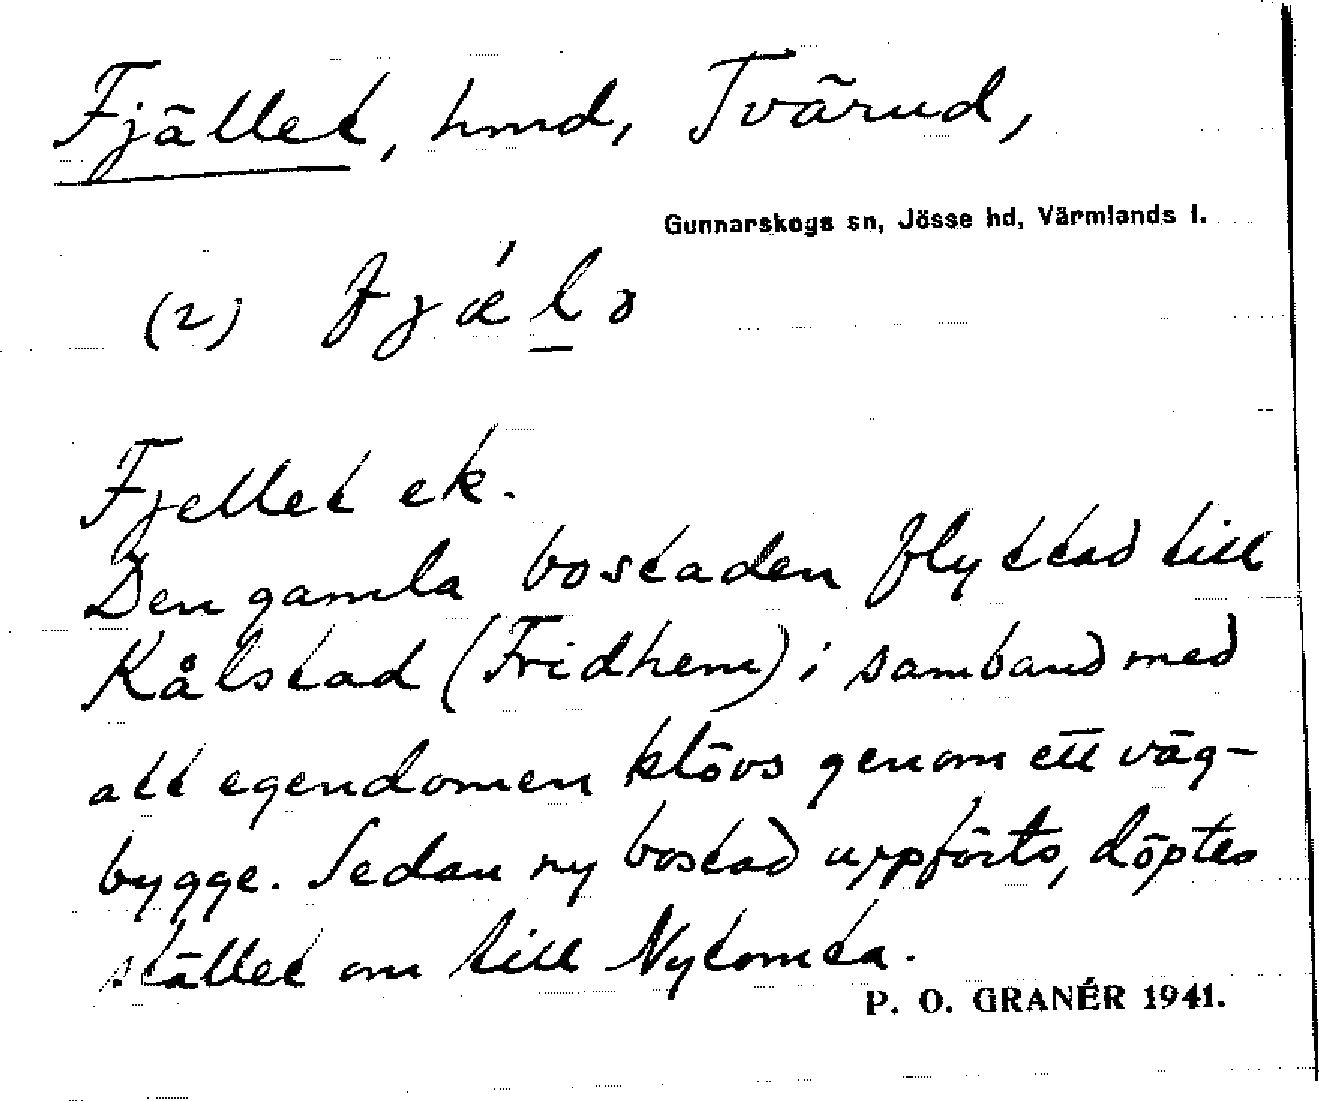 Fjället, hmd, Tvärud,
Gunnarskogs sn, Jösse hd, Värmlands l.
(2) Fjǽlə
Fjellet ek.
Den gamla bostaden flyttad till
Kålstad (Fridhem) i samband med
att egendomen klövs genom ett väg-
bygge. Sedan ny bostad uppförts, döptes
stället om till Nytomta.
P. O. GRANÉR 1941.